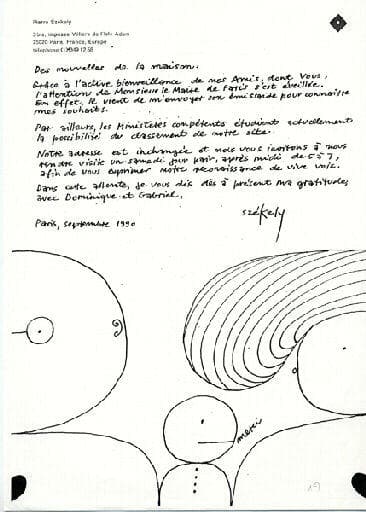 Pierre Székely
Paris, France, Europe
Des nouvelles de la maison.
Grâce à l'active bienveillance de mes Amis, dont Vous,
l'attention de Monsieur le Maire de Paris s'est éveillée.
En effet, il vient de m'envoyer son émissaire pour connaître
mes souhaits.
Par ailleurs, les Ministères compétents étudient actuellement
la possibilité du classement de notre site.
Notre adresse est inchangée et nous vous invitons à nous
rendre visite un samedi jour pair, après midi de 5 à 7,
afin de vous exprimer notre reconnaissance de vive voix.
Dans cette attente, je vous dis dès à présent ma gratitudes
avec Dominique et Gabriel.
Székely
Paris, septembre 1990
merci
19